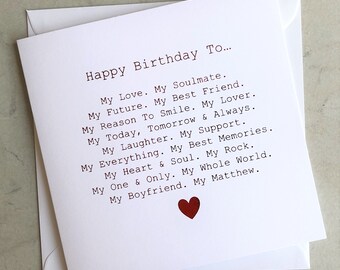 Happy Birthday To...
My Love. My Soulmate.
My Future. My Best Friend.
My Reason To Smile. My Lover.
My Today, Tomorrow & Always.
My Laughter. My Support.
My Everything. My Best Memories.
My Heart & Soul. My Rock.
My One & Only. My Whole World.
My Boyfriend. My Matthew.